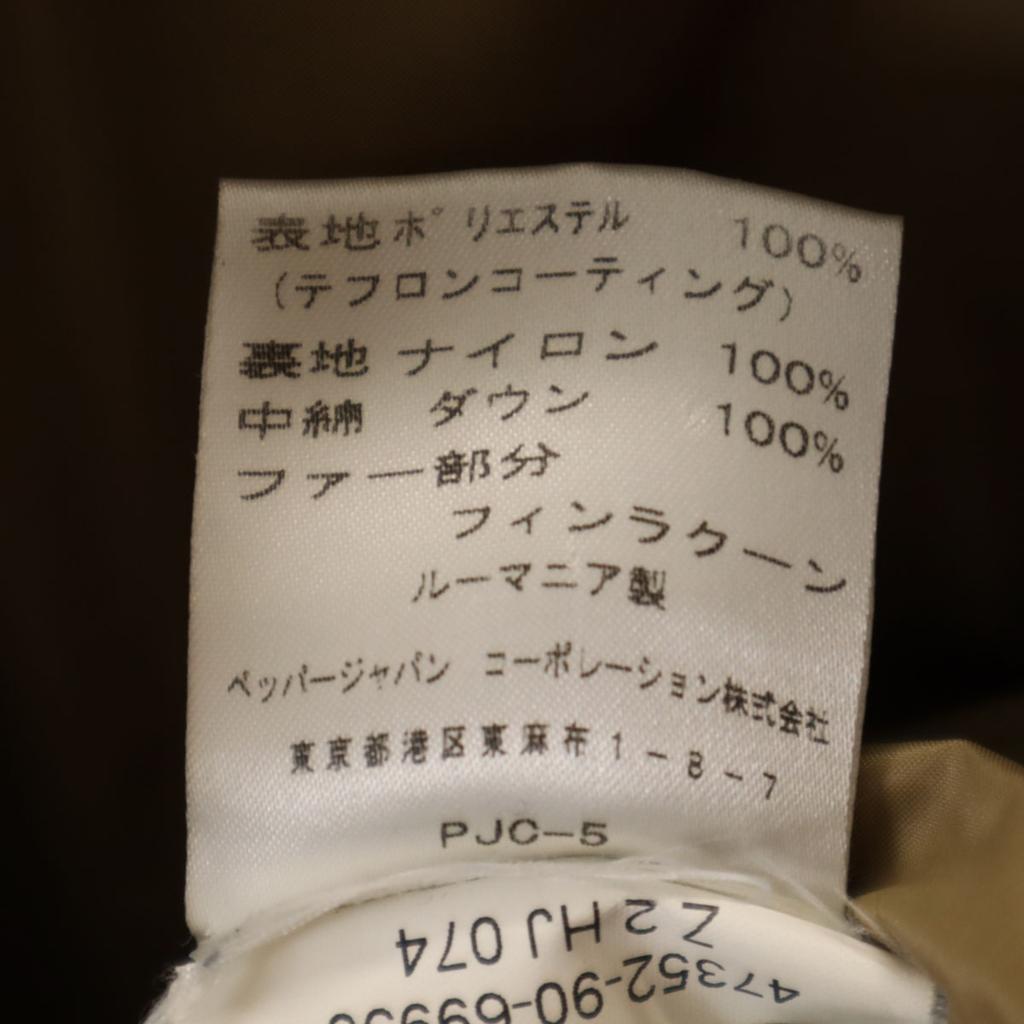 表地ポリエステル 100%
(テフロンコーティング)
裏地 ナイロン 100%
中綿 ダウン 100%
ファー部分
フィンラクーン
ルーマニア製
ペッパージャパン コーポレーション株式会社
東京都港区東麻布1-8-7
PJC-5
Z2HJ074
47352-90-6999